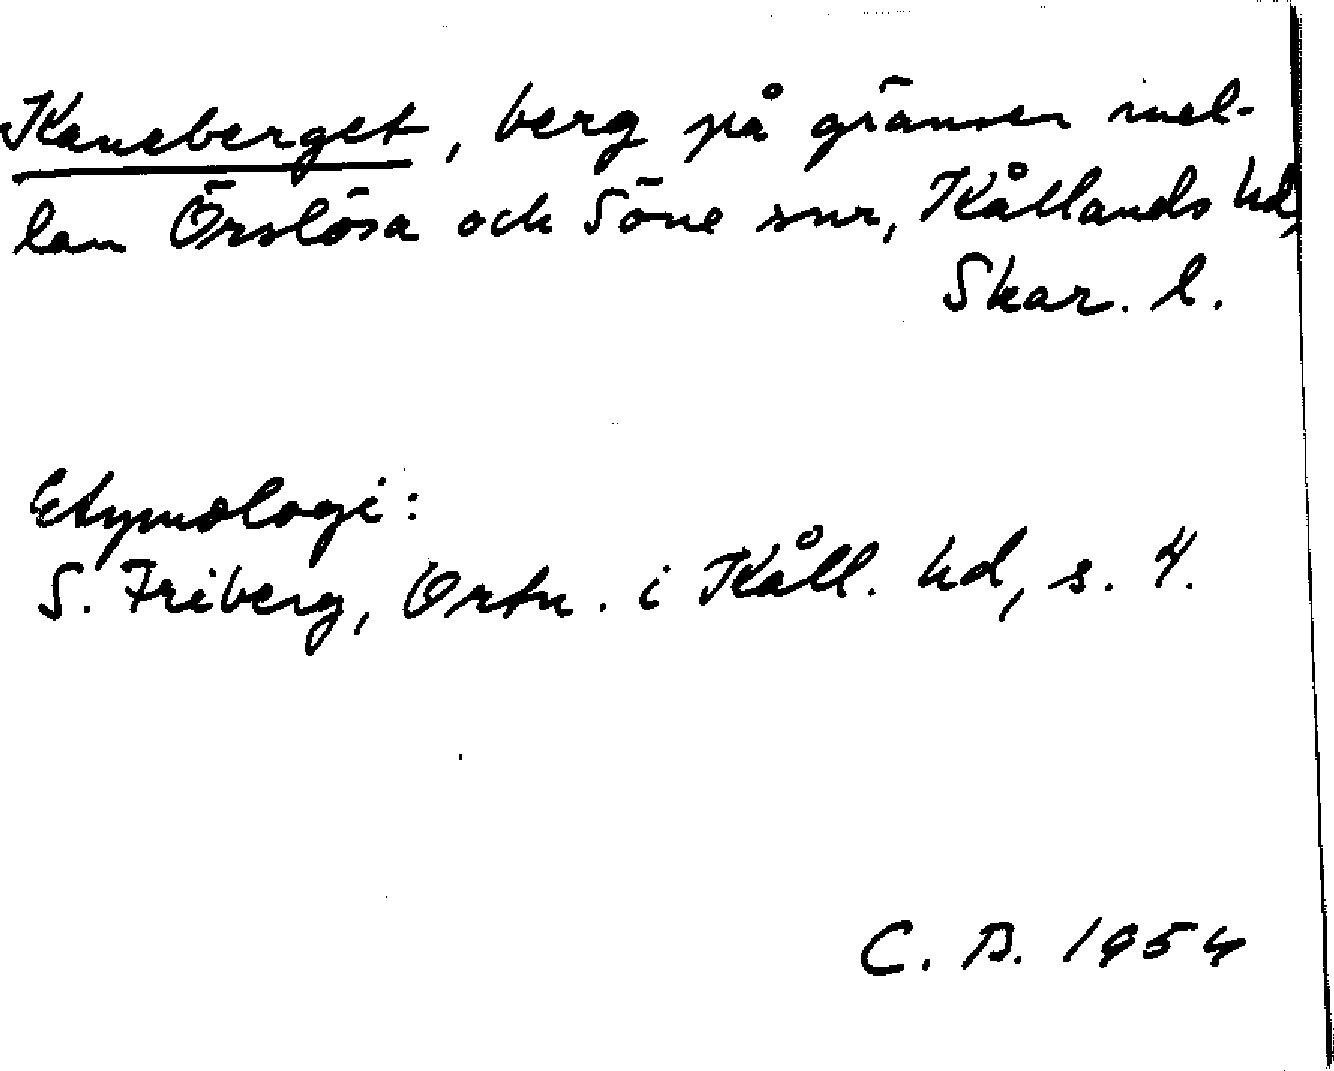 Kaneberget, berg på gränsen mel-
lan Örslösa och Söne snr, Kållands hd,
Skar. l.
Etymologi:
S. Friberg, Ortn. i Kåll. hd, s. 4.
C. A. 1954